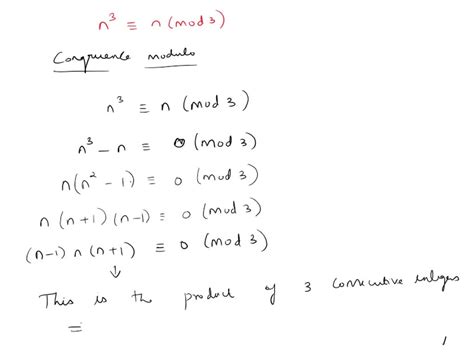 n³ ≡ n (mod 3)
Congruence modulo
n³ ≡ n (mod 3)
n³ - n ≡ 0 (mod 3)
n(n² - 1) ≡ 0 (mod 3)
n (n+1) (n-1) ≡ 0 (mod 3)
(n-1) n (n+1) ≡ 0 (mod 3)
↓
This is the product of 3 consecutive integers
=